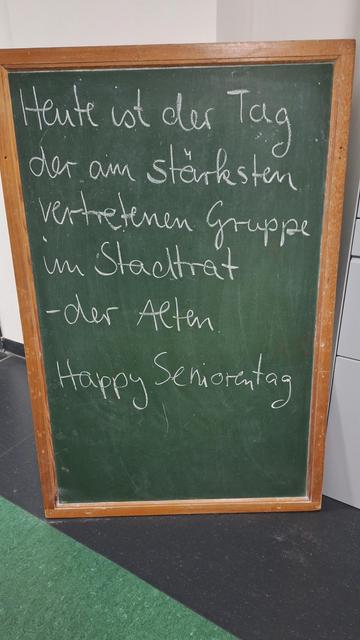 Heute ist der Tag
der am stärksten
vertretenen Gruppe
im Stadtrat
- der Alten.
Happy Seniorentag